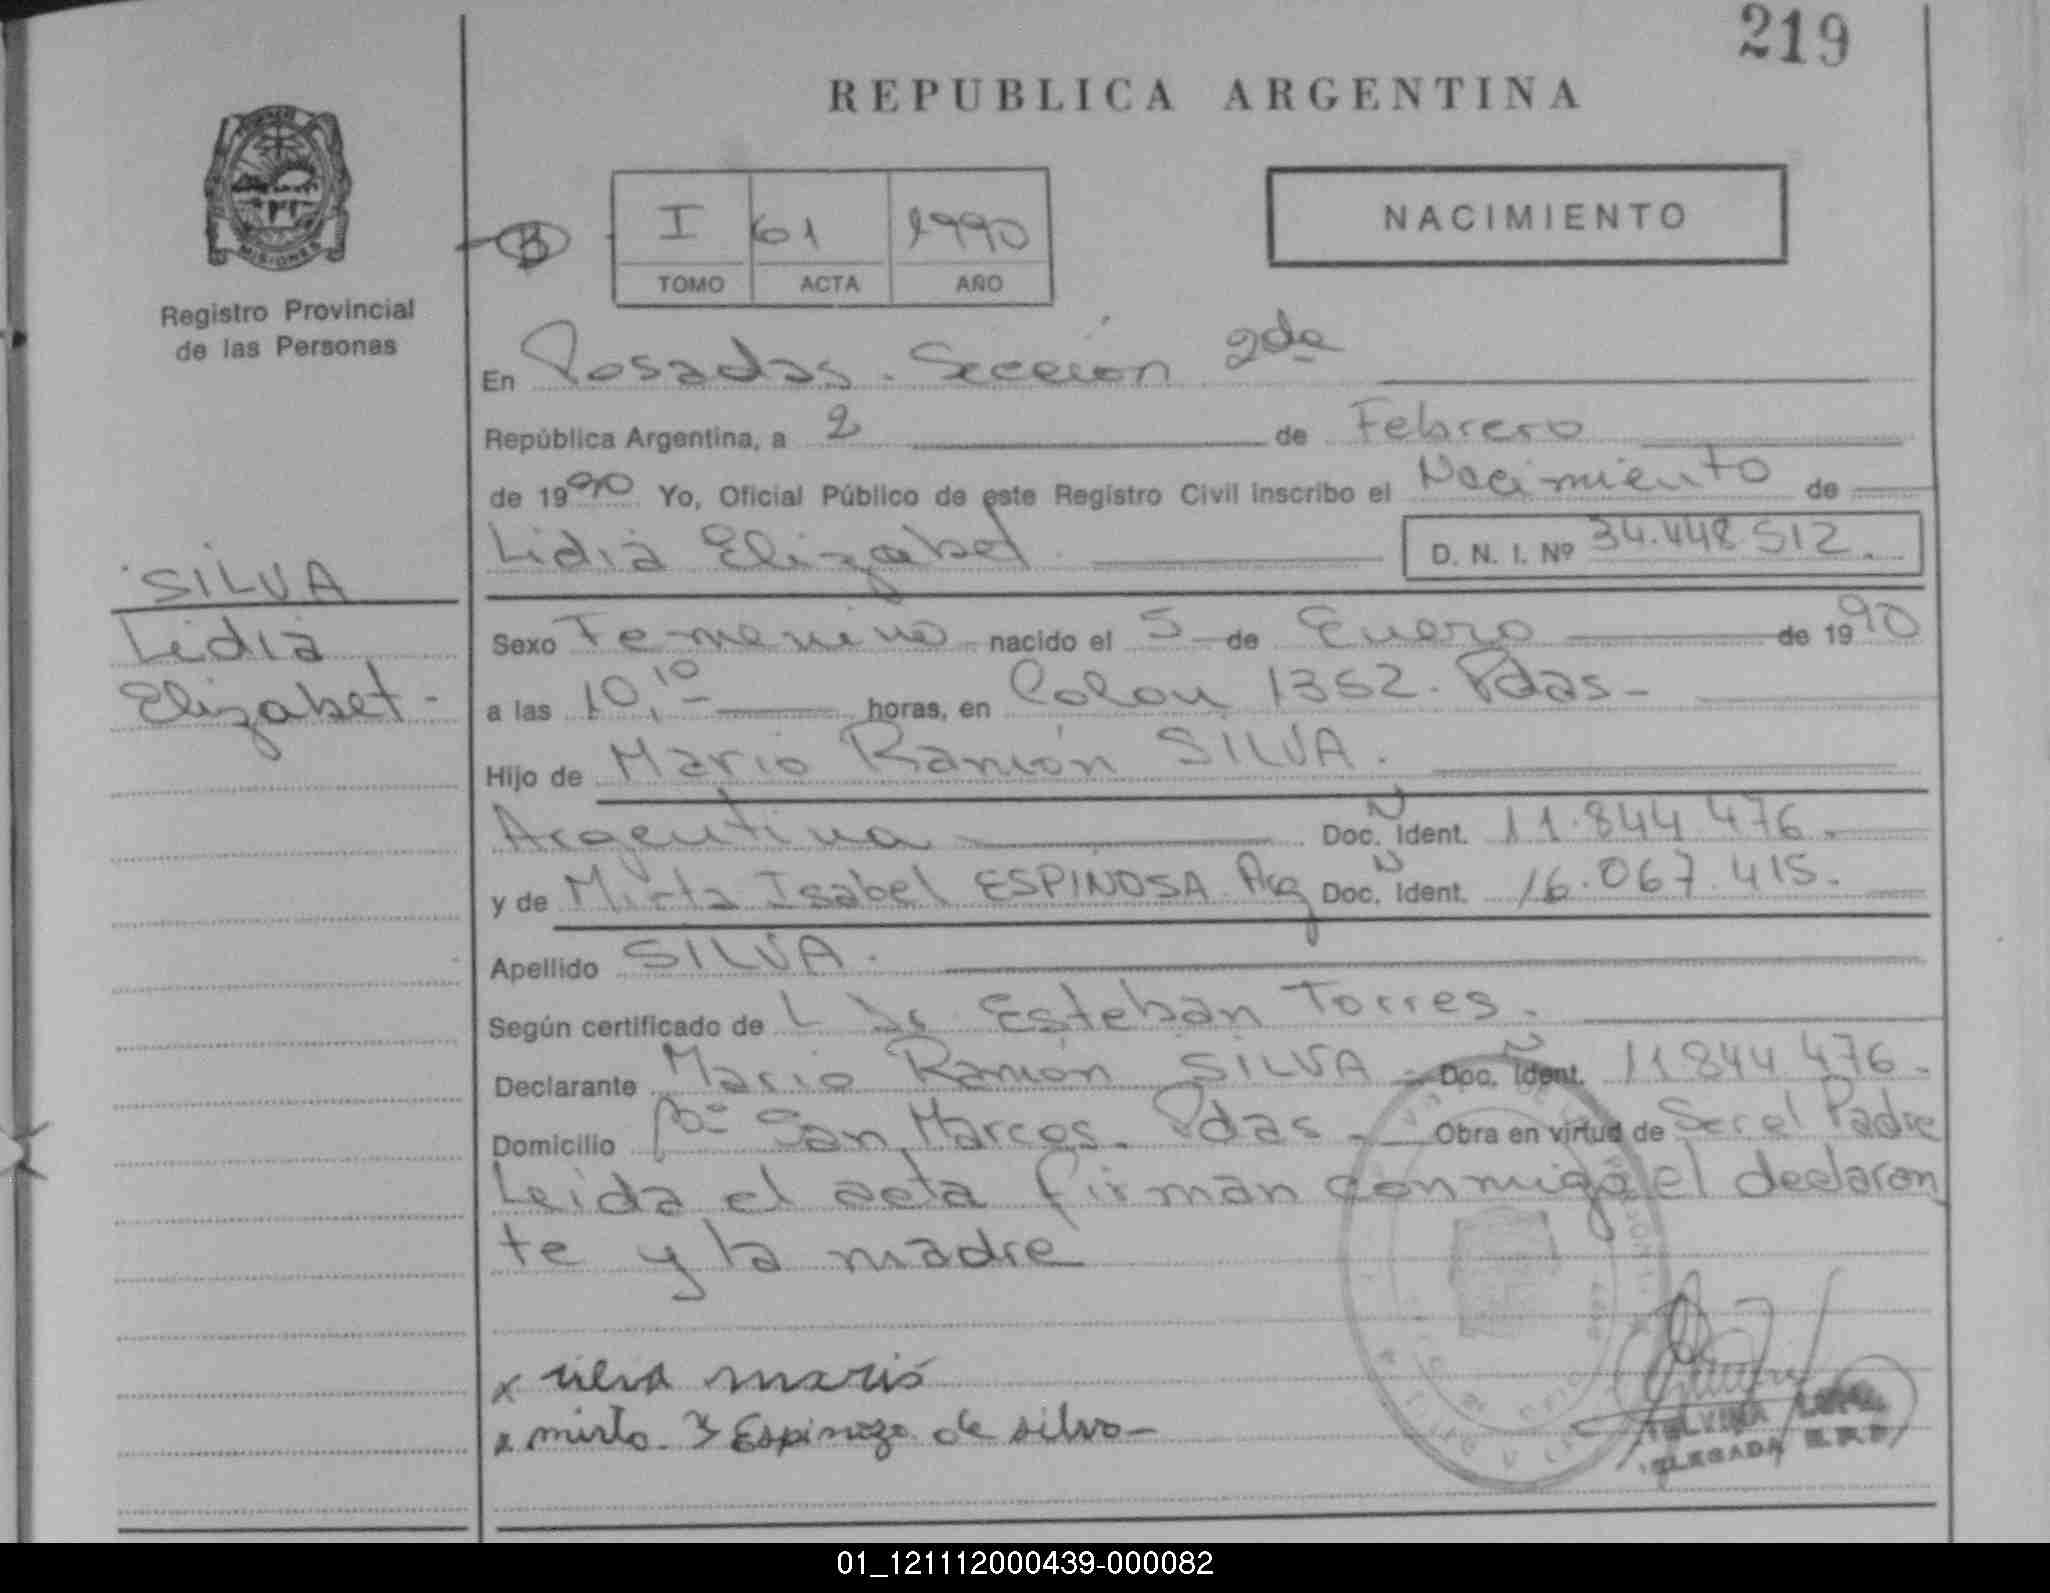 219
REPUBLICA ARGENTINA
MISIONES
Registro Provincial
de las Personas
B
I 61 1990
TOMO ACTA AÑO
NACIMIENTO
En Posadas. Sección 2da
República Argentina, a 2 de Febrero
de 1990 Yo, Oficial Público de este Registro Civil inscribo el Nacimiento de
Lidia Elizabet D. N. I. Nº 34.448 512.
SILVA
Lidia
Elizabet -
Sexo Femenino nacido el 5 de Enero de 1990
a las 10,10 horas, en Colon 1352. Pdas-
Hijo de Mario Ramón SILVA.
Argentina Doc. N Ident. 11.844 476.
y de Mirta Isabel ESPINOSA Arg Doc. N Ident. 16.067.415.
Apellido SILVA.
Según certificado de L Dr Esteban Torres.
Declarante Mario Ramón SILVA - Doc. N Ident. 11844 476.
Domicilio Bº San Marcos. Pdas - Obra en virtud de Ser el Padre
Leida el acta firman conmigo el declaran
te y la madre
x silva mario
x mirta Y Espinoza de silva-
TELVINA
DELEGADA R.P.P
01_121112000439-000082